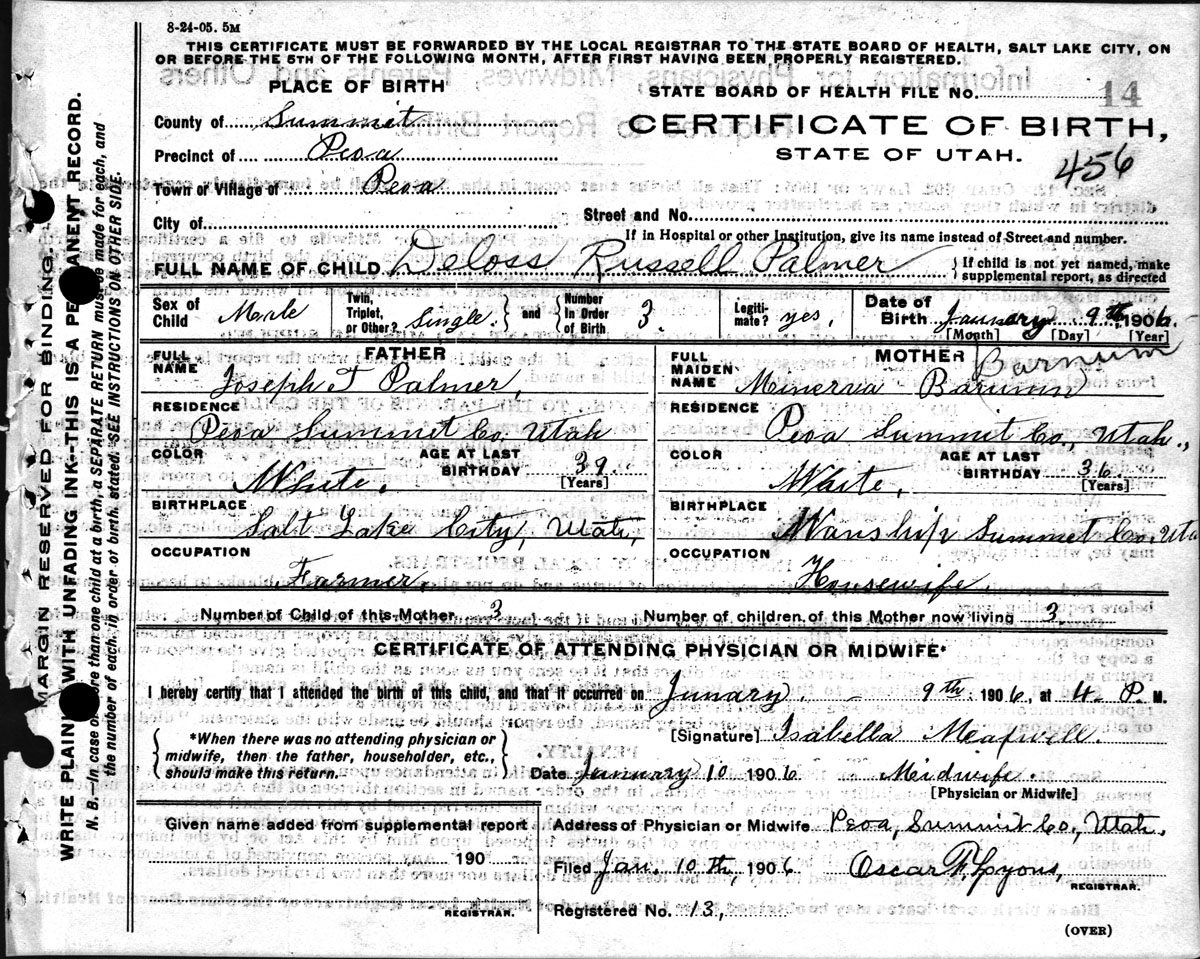 8-24-05. 5M
THIS CERTIFICATE MUST BE FORWARDED BY THE LOCAL REGISTRAR TO THE STATE BOARD OF HEALTH, SALT LAKE CITY, ON
OR BEFORE THE 5TH OF THE FOLLOWING MONTH, AFTER FIRST HAVING BEEN PROPERLY REGISTERED.
PLACE OF BIRTH
STATE BOARD OF HEALTH FILE NO. 14
County of Summit
CERTIFICATE OF BIRTH,
Precinct of Peoa
STATE OF UTAH.
456
Town or Village of Peoa
City of
Street and No.
If in Hospital or other Institution, give its name instead of Street and number.
FULL NAME OF CHILD Deloss Russell Palmer { If child is not yet named, make
supplemental report, as directed
Sex of Child Male
Twin, Triplet, or Other? Single. } and { Number In Order of Birth 3.
Legiti-mate? yes,
Date of Birth January 9th, 1906.
[Month] [Day] [Year]
FATHER
MOTHER
Barnum
FULL NAME Joseph T Palmer,
FULL MAIDEN NAME Minerva Barumn
RESIDENCE
Peoa Summit Co, Utah
RESIDENCE
Peoa Summit Co., Utah.,
COLOR White,
AGE AT LAST BIRTHDAY 39.
[Years]
COLOR White,
AGE AT LAST BIRTHDAY 36
[Years]
BIRTHPLACE
Salt Lake City, Utah,
BIRTHPLACE
Wanship Summit Co, Uta
OCCUPATION
Farmer.
OCCUPATION
Housewife.
Number of Child of this Mother 3
Number of children, of this Mother now living 3.
CERTIFICATE OF ATTENDING PHYSICIAN OR MIDWIFE*
I hereby certify that I attended the birth of this child, and that it occurred on Junary. - 9th 1906, at 4. P. M.
[Signature] Isabella
{ *When there was no attending physician or
midwife, then the father, householder, etc.,
should make this return. }
Date January 10 1906
Midwife.
[Physician or Midwife]
Given name added from supplemental report
190
REGISTRAR.
Address of Physician or Midwife Peoa, Summit Co, Utah.
Filed Jan. 10th, 1906
Oscar F. Lyons,
REGISTRAR.
Registered No. 13,
(OVER)
MARGIN RESERVED FOR BINDING.
WRITE PLAIN WITH UNFADING INK--THIS IS A PE ANENT RECORD.
N. B.—In case o ore than one child at a birth, a SEPARATE RETURN mus be made for each, and
the number of each, in order of birth, stated. SEE INSTRUCTIONS ON OTHER SIDE.